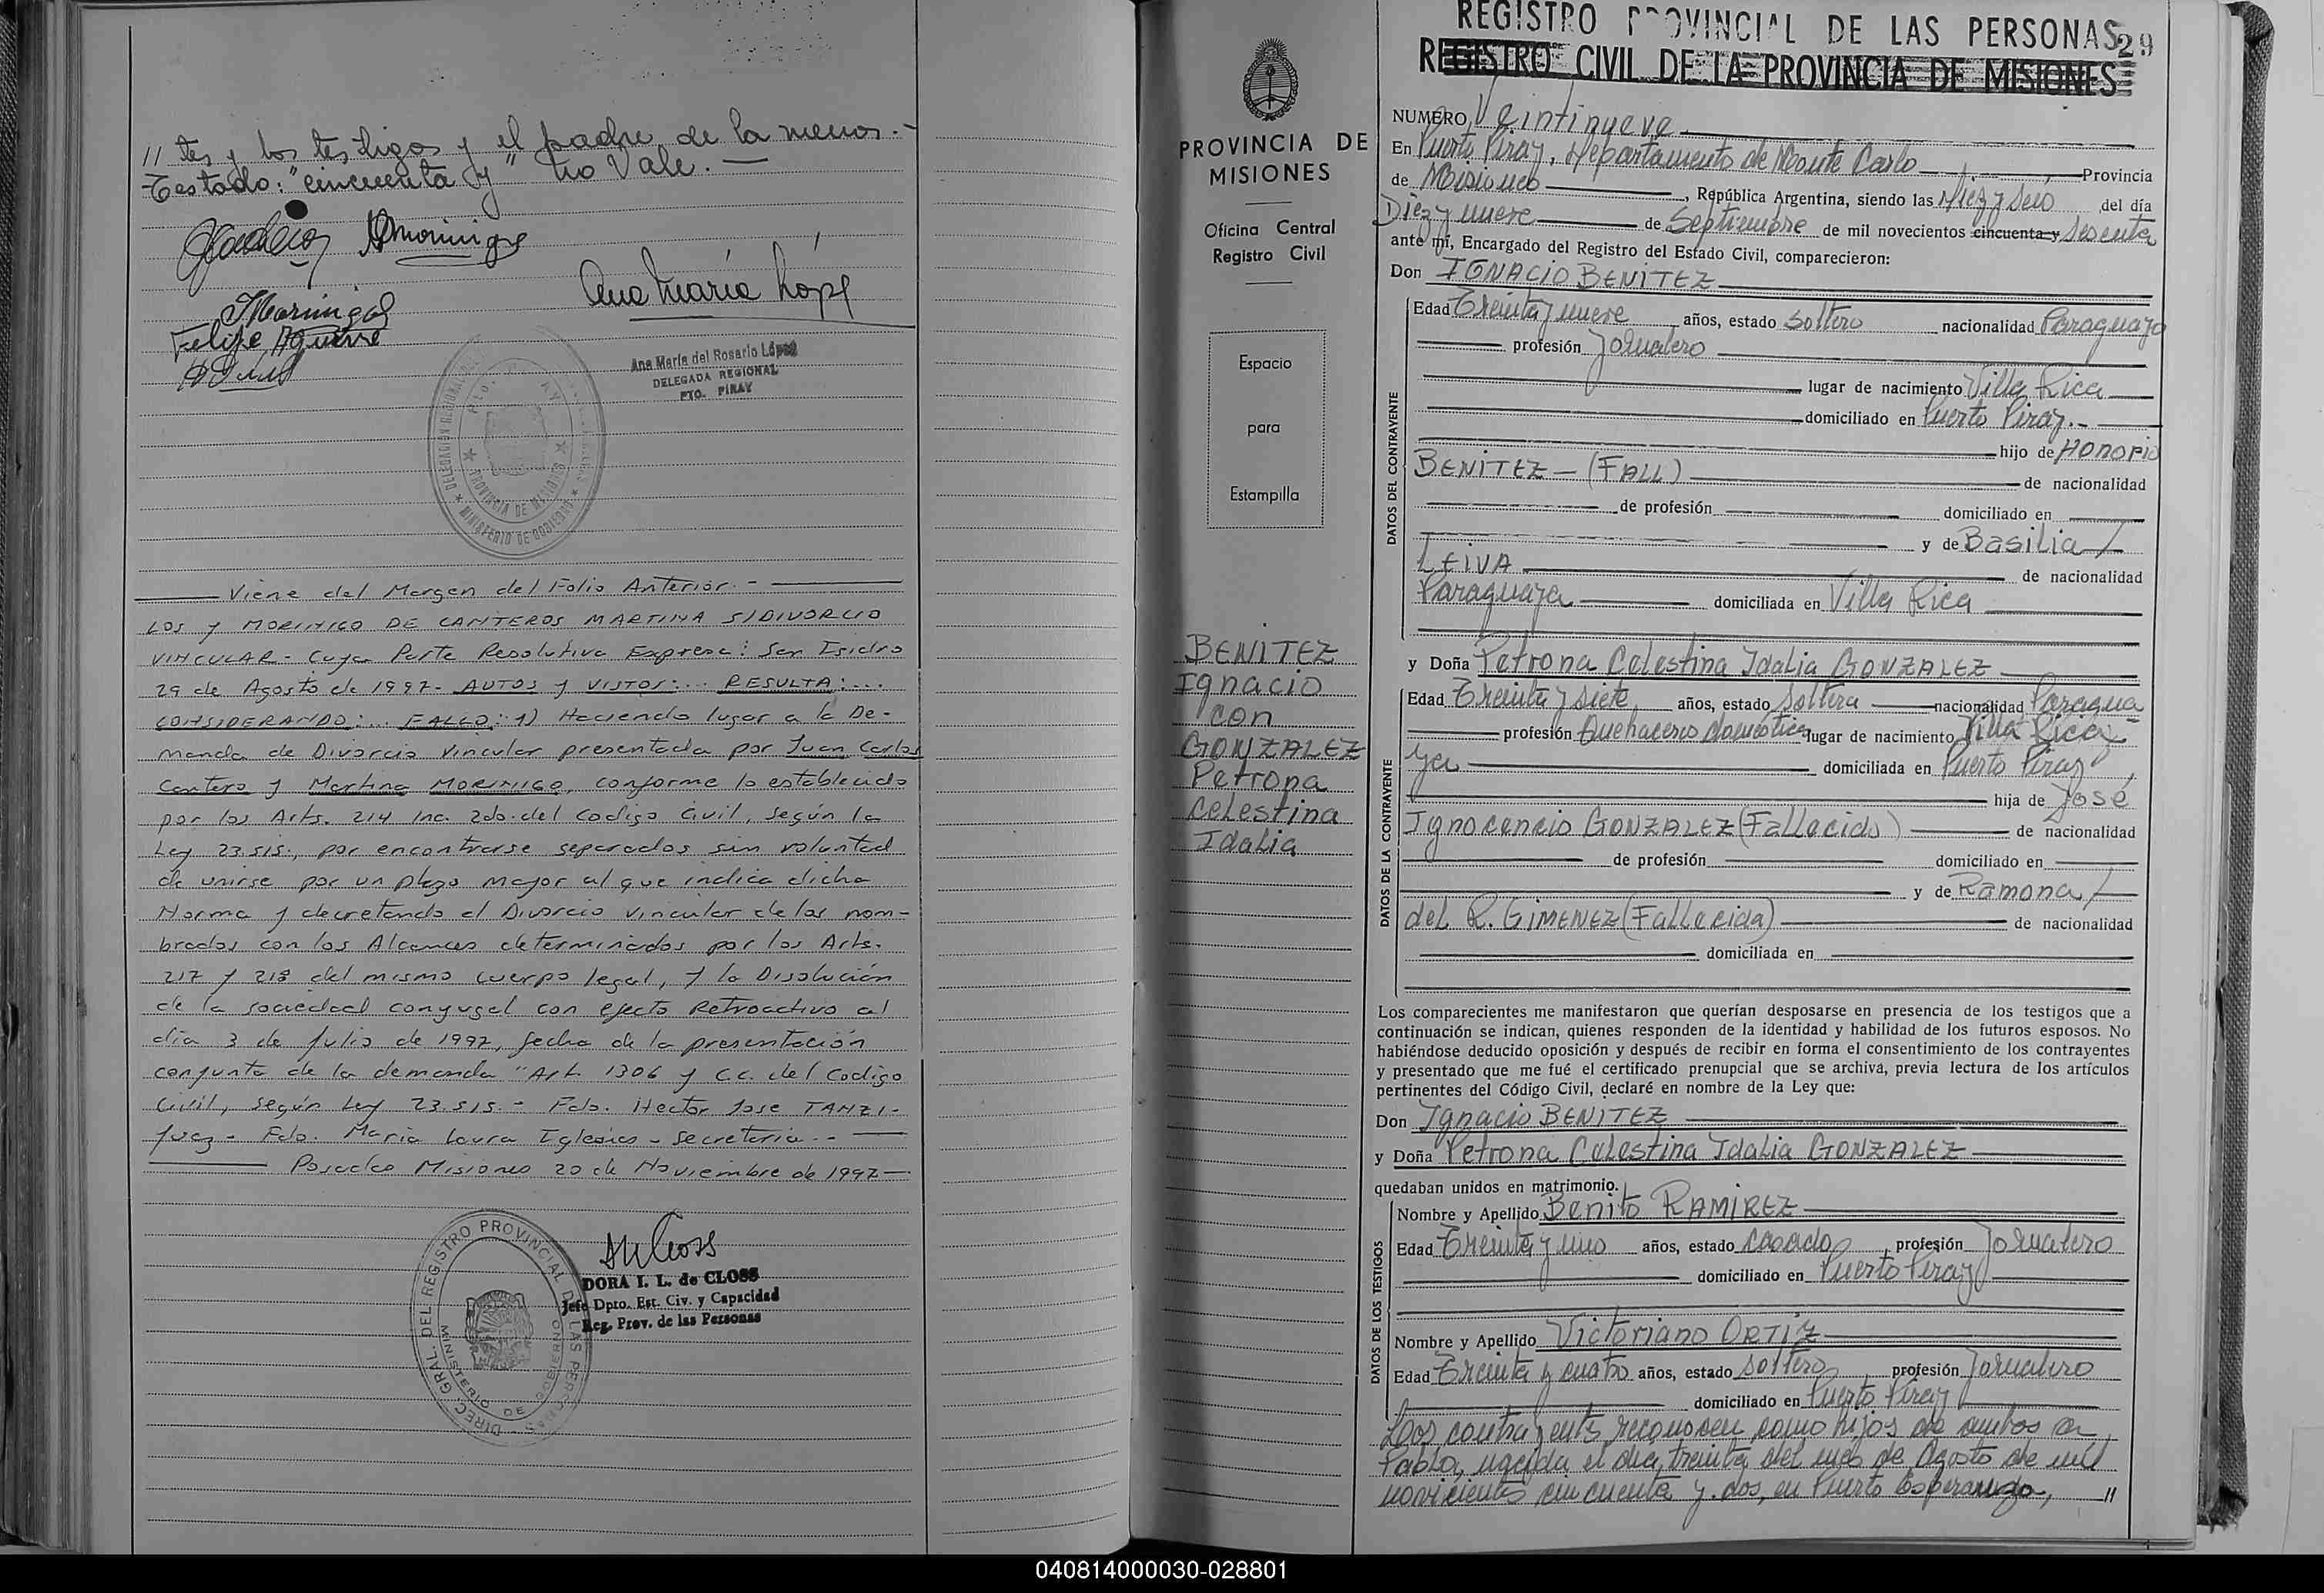 // tes y los testigos y el padre de la menor.-
Testado: "cincuenta y" no Vale. —
Ana María López
Felipe Aguirre
Ana María del Rosario López
DELEGADA REGIONAL
PTO. PIRAY
MINISTERIO DE GOBIERNO
PROVINCIA DE MISIONES
Viene del Margen del Folio Anterior.-
LOS y MORINIGO DE CANTEROS MARTINA S/DIVORCIO
VINCULAR- Cuya Parte Resolutiva Expresa: San Isidro
29 de Agosto de 1997- AUTOS y VISTOS:... RESULTA:...
CONSIDERANDO:... FALLO: 1) Haciendo lugar a la De-
manda de Divorcio Vincular presentada por Juan Carlos
Cantero y Martina MORINIGO, conforme lo establecido
por los Arts. 214 Inc. 2do. del Codigo Civil, según la
Ley 23.515., por encontrarse separados sin voluntad
de unirse por un plazo mayor al que indica dicha
Norma y decretando el Divorcio vincular de los nom-
brados con los Alcances determinados por los Arts.
217 y 218 del mismo cuerpo legal, y la Disolución
de la sociedad conyugal con efecto Retroactivo al
día 3 de Julio de 1992, fecha de la presentación
conjunta de la demanda "Art. 1306 y C.C. del Codigo
Civil, según Ley 23.515.- Fdo. Hector Jose TANZI-
Juez- Fdo. Maria Laura Iglesias - Secretaria.-
Posadas Misiones 20 de Noviembre de 1997—
DORA I. L. de CLOSS
Jefe Dpto. Est. Civ. y Capacidad
Reg. Prov. de las Personas
DIREC. GRAL. DEL REGISTRO PROVINCIAL DE LAS PERSONAS
MINISTERIO DE GOBIERNO
PROVINCIA DE
MISIONES
Oficina Central
Registro Civil
Espacio
para
Estampilla
BENITEZ
Ignacio
con
GONZALEZ
Petrona
Celestina
Idalia
REGISTRO PROVINCIAL DE LAS PERSONAS
29
REGISTRO CIVIL DE LA PROVINCIA DE MISIONES
NUMERO Veintinueve
En Puerto Piray, Departamento de Monte Carlo Provincia
de Misiones, República Argentina, siendo las Diez y Seis del día
Diez y nueve de Septiembre de mil novecientos cincuenta y Sesenta
ante mí, Encargado del Registro del Estado Civil, comparecieron:
Don IGNACIO BENITEZ
DATOS DEL CONTRAYENTE
Edad Treinta y nueve años, estado Soltero nacionalidad Paraguaya
profesión Jornalero
lugar de nacimiento Villa Rica
domiciliado en Puerto Piray.-
hijo de HONORIO
BENITEZ - (FALL) de nacionalidad
de profesión domiciliado en
y de Basilia /
LEIVA de nacionalidad
Paraguaya domiciliada en Villa Rica
y Doña Petrona Celestina Idalia GONZALEZ
DATOS DE LA CONTRAYENTE
Edad Treinta y siete años, estado Soltera nacionalidad Paragua
profesión Quehaceres domésticos lugar de nacimiento Villa Rica
ya domiciliada en Puerto Piray
hija de José
Ignocencio GONZALEZ (Fallecido) de nacionalidad
de profesión domiciliado en
y de Ramona /
del R. GIMENEZ (Fallecida) de nacionalidad
domiciliada en
Los comparecientes me manifestaron que querían desposarse en presencia de los testigos que a
continuación se indican, quienes responden de la identidad y habilidad de los futuros esposos. No
habiéndose deducido oposición y después de recibir en forma el consentimiento de los contrayentes
y presentado que me fué el certificado prenupcial que se archiva, previa lectura de los artículos
pertinentes del Código Civil, declaré en nombre de la Ley que:
Don Ignacio BENITEZ
y Doña Petrona Celestina Idalia GONZALEZ
quedaban unidos en matrimonio.
DATOS DE LOS TESTIGOS
Nombre y Apellido Benito RAMIREZ
Edad Treinta y uno años, estado Casado, profesión Jornalero
domiciliado en Puerto Piray
Nombre y Apellido Victoriano ORTIZ
Edad Treinta y cuatro años, estado soltero, profesión Jornalero
domiciliado en Puerto Piray
Los contrayentes reconocen como hijos de ambos a:
Pablo, nacida el día treinta del mes de Agosto de mil
novecientos cincuenta y dos, en Puerto Esperanza, //
040814000030-028801